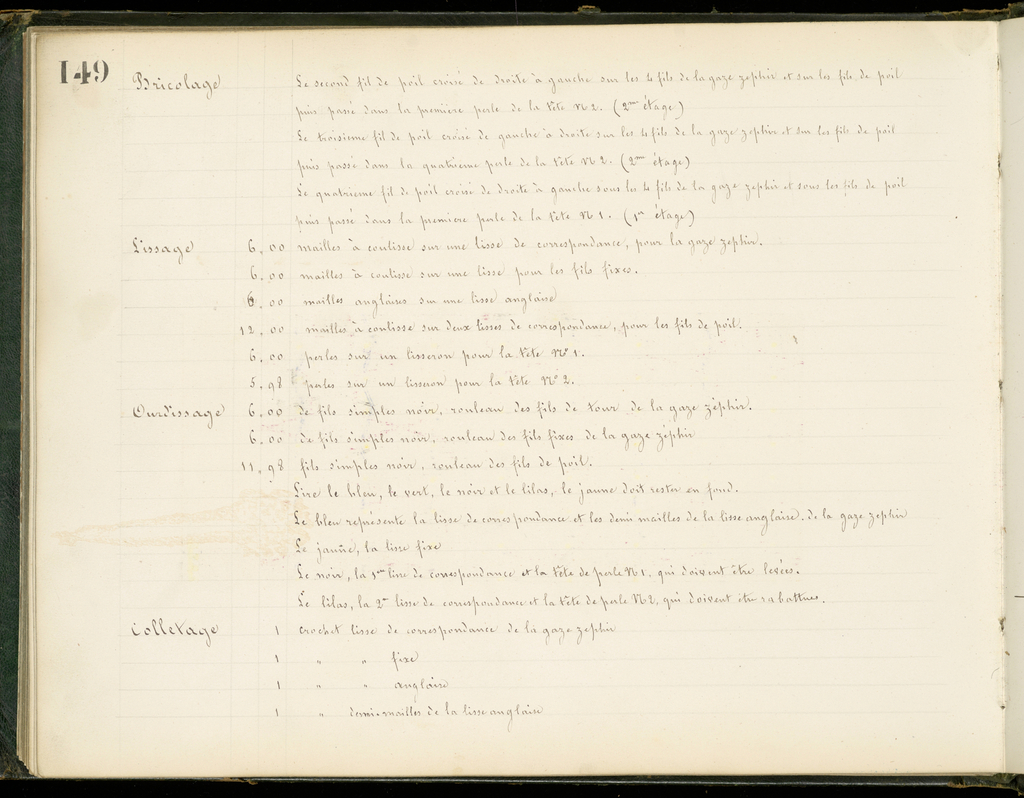 149
Bricolage Le second fil de poil croisé de droite à gauche sur les 4 fils de la gaze zephir et sur les fils de poil
puis passé dans la première perle de la tête N 2. (2me étage)
Le troisieme fil de poil croisé de gauche à droite sur les 4 fils de la gaze zephir et sur les fils de poil
puis passé dans la quatrieme perle de la tête N 2. (2me étage)
Le quatrieme fil de poil croisé de droite à gauche sous les 4 fils de la gaze zephir et sous les fils de poil
puis passé dans la premiere perle de la tête N 1. (1er étage)
Lissage 6,00 mailles à coulisse sur une lisse de correspondance, pour la gaze zephir.
6,00 mailles à coulisse sur une lisse pour les fils fixes.
6,00 mailles anglaises sur une lisse anglaise
12,00 mailles à coulisse sur deux lisses de correspondance, pour les fils de poil.
6,00 perles sur un lisseron pour la tête No 1.
5,98 perles sur un lisseron pour la tête No 2.
Ourdissage 6,00 de fils simples noir, rouleau des fils de tour de la gaze zéphir.
6,00 de fils simples noir, rouleau des fils fixes de la gaze zéphir
11,98 fils simples noir, rouleau des fils de poil.
Lire le bleu, le vert, le noir et le lilas, le jaune doit rester en fond.
Le bleu représente la lisse de correspondance et les demi mailles de la lisse anglaise de la gaze zephir
Le jaune, la lisse fixe
Le noir, la 1re lisse de correspondance et la tête de perle N 1, qui doivent être levées.
Le lilas, la 2e lisse de correspondance et la tête de perle N 2, qui doivent être rabattues.
Colletage 1 crochet lisse de correspondance de la gaze zephir
1 " " fixe
1 " " anglaise
1 " demi-mailles de la lisse anglaise